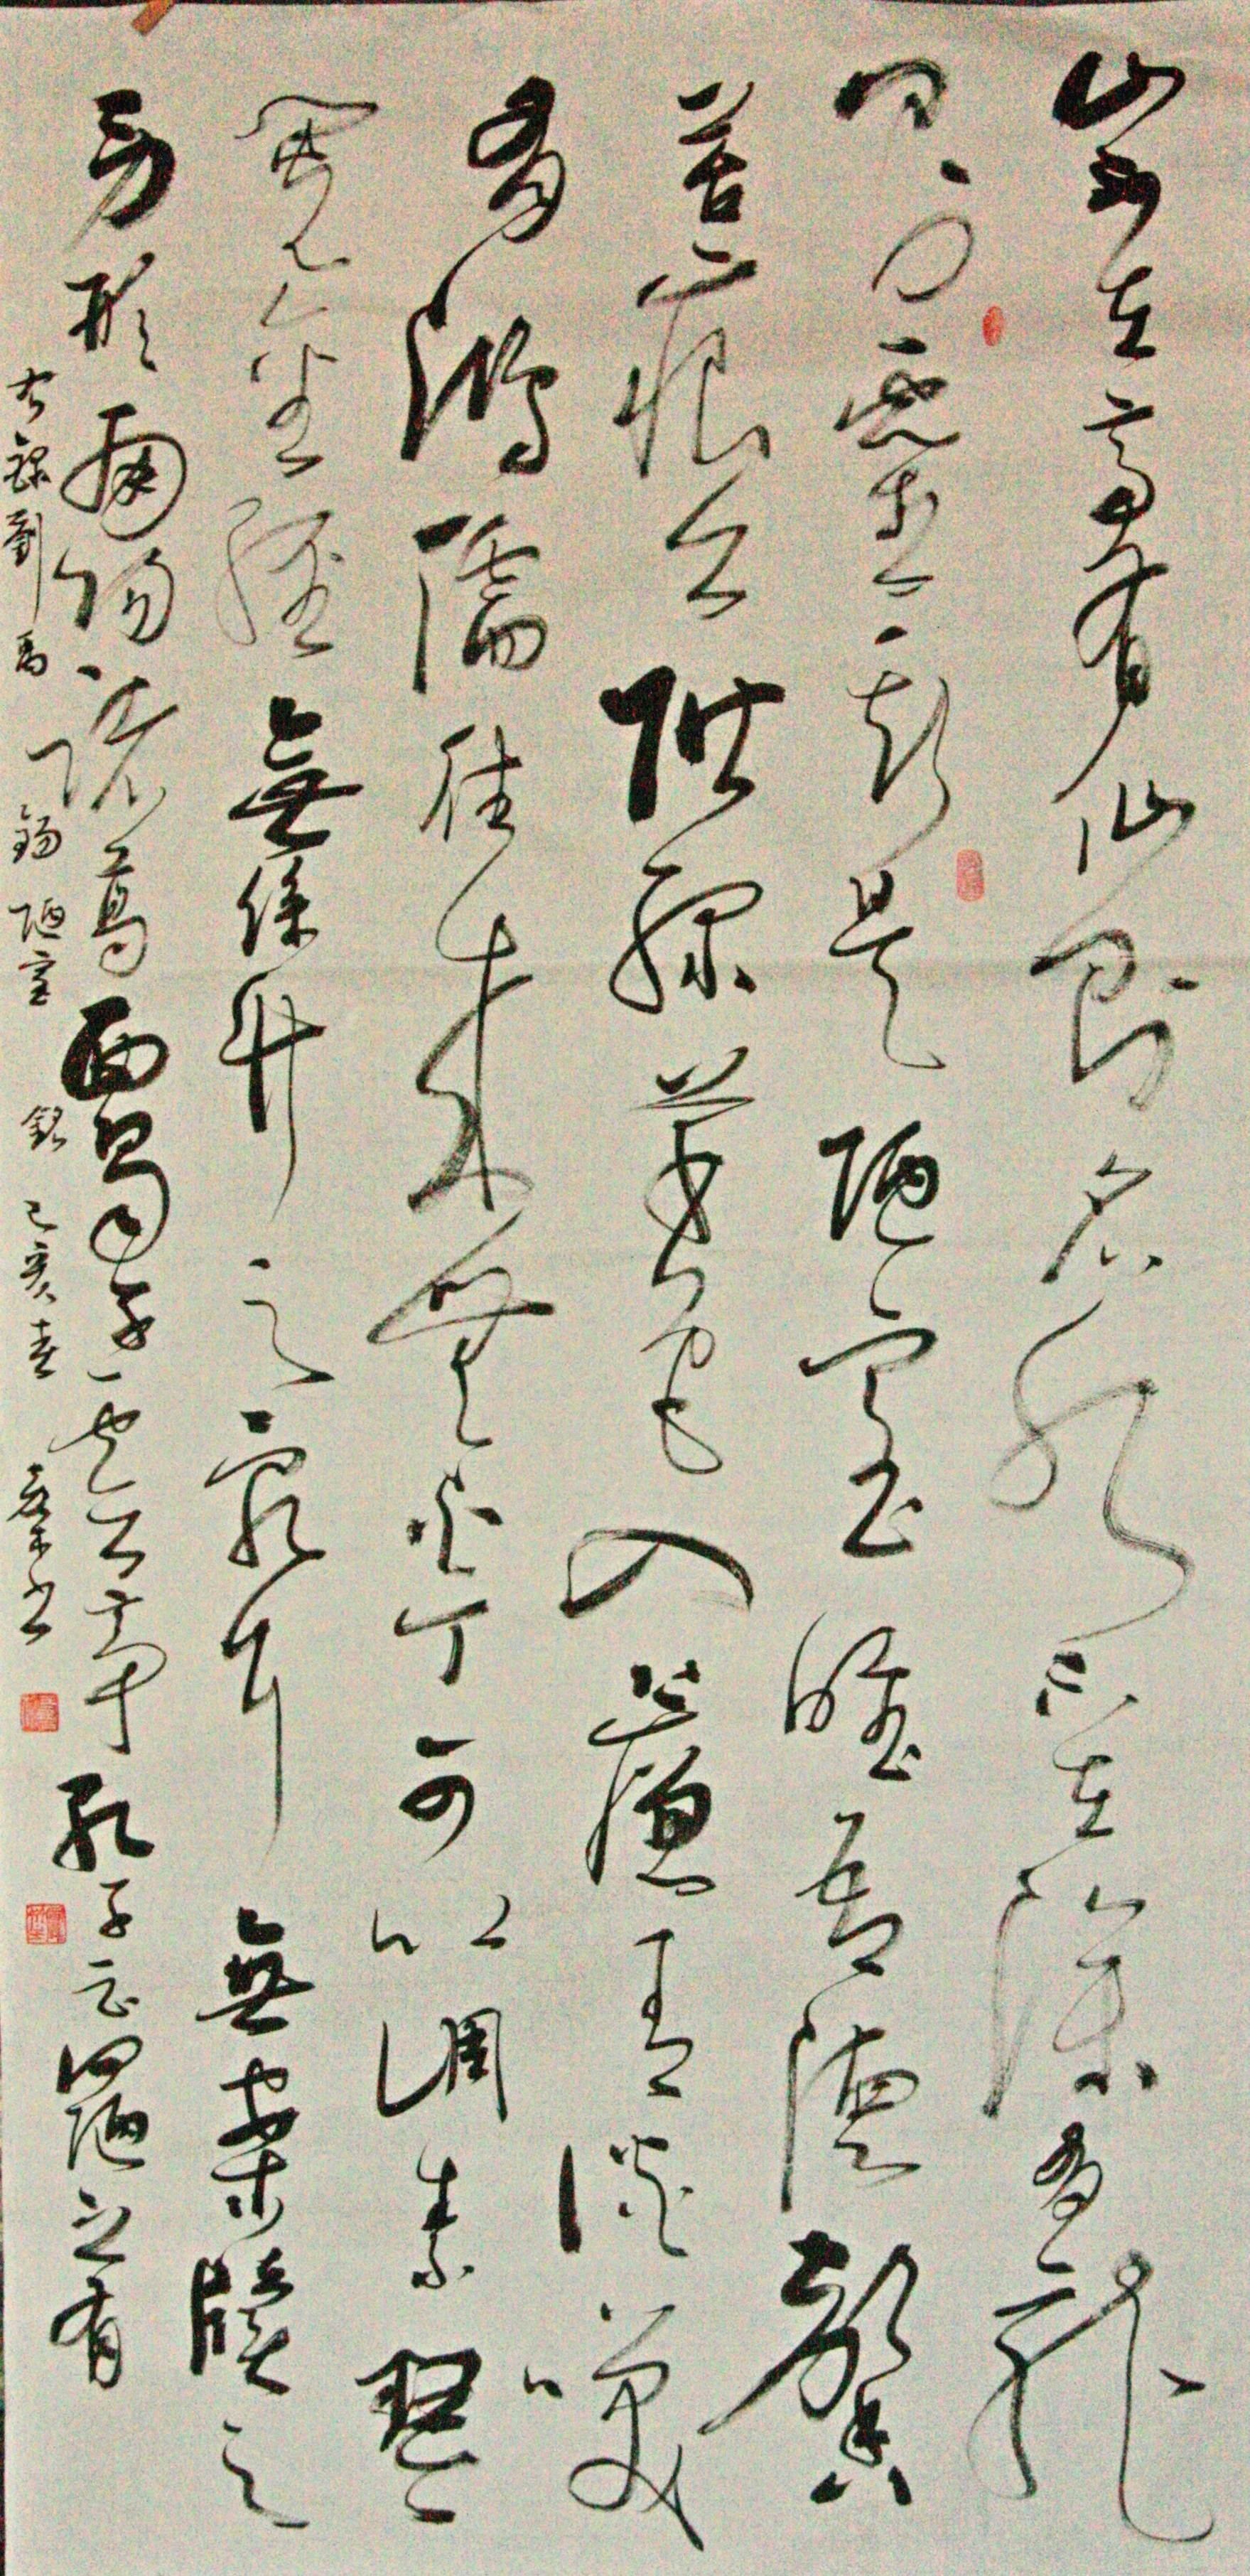 山不在高有仙則名水不在深有龍
則靈斯是陋室惟吾德馨
苔痕上階綠草色入簾青談笑
有鴻儒往來無白丁可以調素琴
閱金經無絲竹之亂耳無案牘之
勞形南陽諸葛西蜀子雲亭孔子云何陋之有
右錄劉禹錫陋室銘 己亥春 書